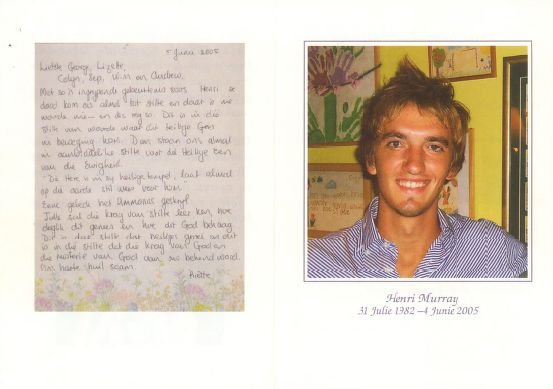 5 Junie 2005
Liefste George, Lizette,
Colyn, Sep, Wim en Andrew.
Met so 'n ingrypende gebeurtenis soos Henri se
dood kom ons almal tot stilte en daar is nie
woorde nie – en dis reg so. Dit is in die
stilte van woorde waar die Heilige Gees
in beweging kom. Dan staan ons almal
in stilte voor die Heilige Een
van die Ewigheid.
"Die Here is in sy heilige tempel, laat almal
op die aarde stil wees voor Hom.
Eens gebed het Ammonas geskryf
Julle sal die krag van stilte leer ken, hoe
dit genees en hoe dit God behaag.
Dit is deur stilte dat heiliges groei en dit
is in die stilte dat die krag van God en
die misterie van God aan ons behoort word.
Ons harte huil saam.
Henri Murray
31 Julie 1982 – 4 Junie 2005